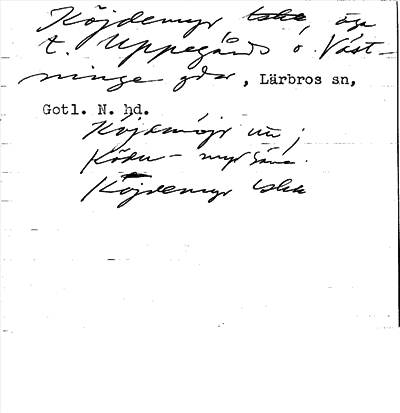 Köjdemyr tskr, äga
t. Uppegårds o. Väst-
ninge gdar, Lärbros sn,
Gotl. N. hd.
Köjdmöjr uu;
Ködu- myr
Köjdemyr tskr